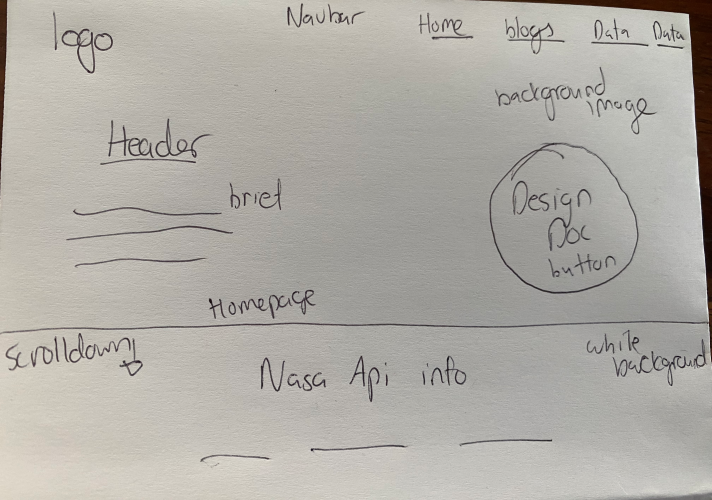 logo
Navbar
Home blogs Data Data
background
image
Header
brief
Design
Doc
button
Homepage
scrolldown
white
background
Nasa Api info